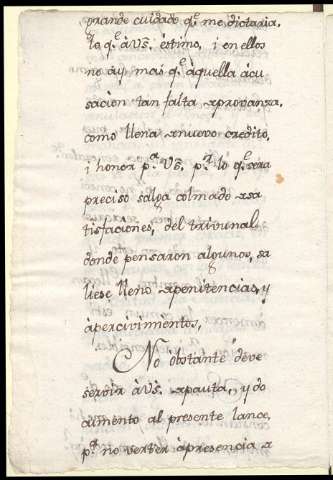 grande cuidado q.e me dictaria,
lo q.e à VS. estimo, i en ellos
no ay mas q.e àquella àcu
sacion tan falta de provanza,
como llena de nuevo credito,
i honor p.a VS. p.r lo q.e sera
preciso salga colmado de sa
tisfaciones, del trivunal,
donde pensaron algunos, sa
liese lleno de penitencias, y
àpercivimentos,
No obstante deve
servir à VS. de pauta, y do
cumento al presente lance,
p.a no verter à presencia de